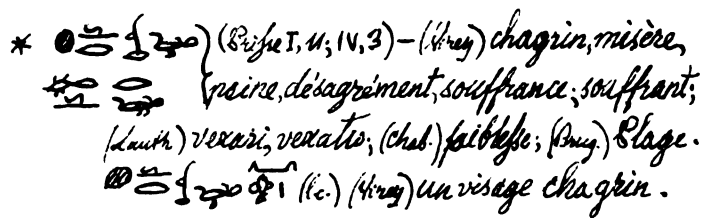 * (Prisse I, 11; IV, 3) – (Virey) chagrin, misère,
peine, désagrément, souffrance; souffrant;
(Lauth) vexari, vexatio; (Chab.) faiblesse; (Brug.) Plage.
(l.c.) (Virey) un visage chagrin.